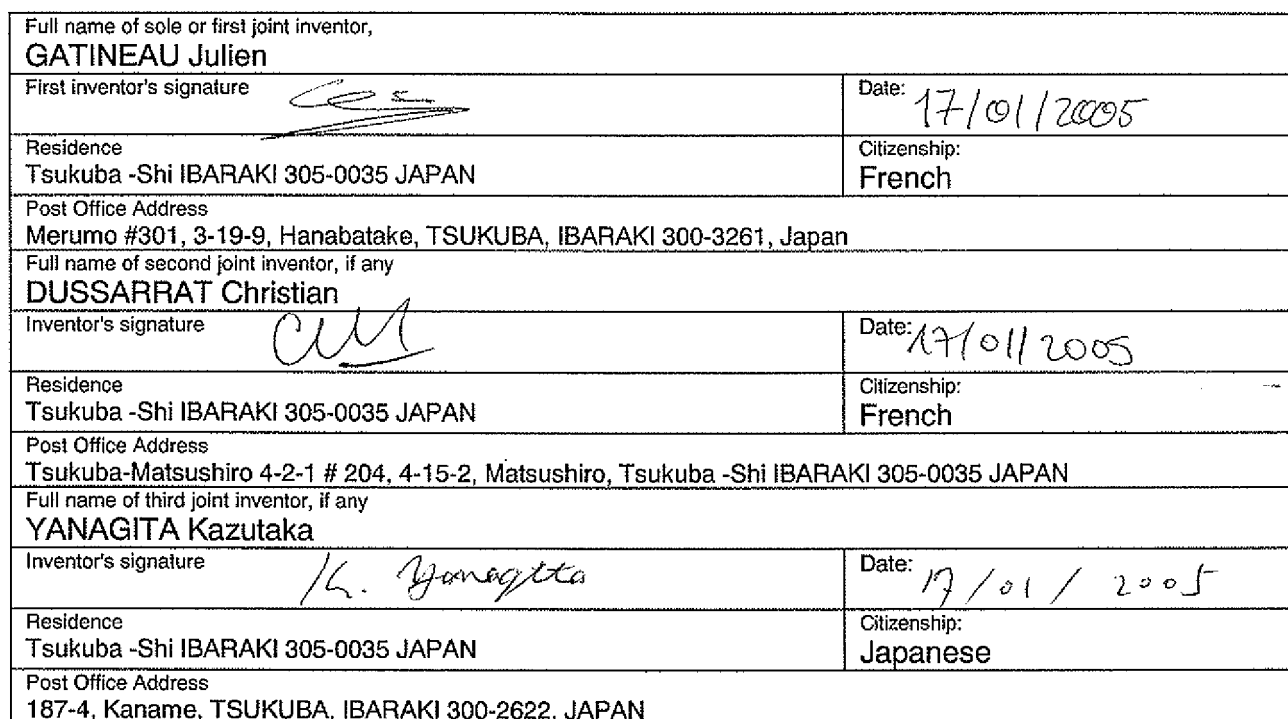 Full name of sole or first joint inventor,
GATINEAU Julien
First inventor's signature
Date: 17/01/2005
Residence
Tsukuba -Shi IBARAKI 305-0035 JAPAN
Citizenship:
French
Post Office Address
Merumo #301, 3-19-9, Hanabatake, TSUKUBA, IBARAKI 300-3261, Japan
Full name of second joint inventor, if any
DUSSARRAT Christian
Inventor's signature
Date: 17/01/2005
Residence
Tsukuba -Shi IBARAKI 305-0035 JAPAN
Citizenship:
French
Post Office Address
Tsukuba-Matsushiro 4-2-1 # 204, 4-15-2, Matsushiro, Tsukuba -Shi IBARAKI 305-0035 JAPAN
Full name of third joint inventor, if any
YANAGITA Kazutaka
Inventor's signature K. Yanagita
Date: 17/01/2005
Residence
Tsukuba -Shi IBARAKI 305-0035 JAPAN
Citizenship:
Japanese
Post Office Address
187-4, Kaname, TSUKUBA, IBARAKI 300-2622, JAPAN